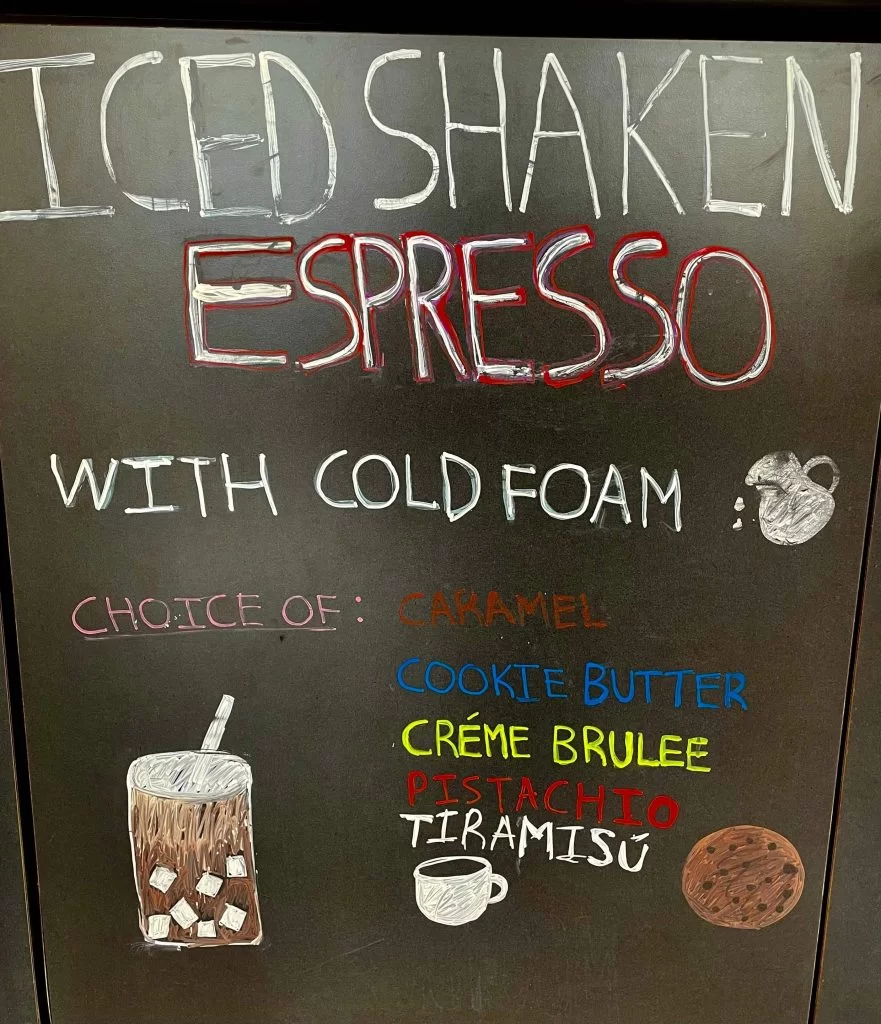 ICED SHAKEN
ESPRESSO
WITH COLD FOAM
CHOICE OF: CARAMEL
COOKIE BUTTER
CRÉME BRULEE
PISTACHIO
TIRAMISÚ